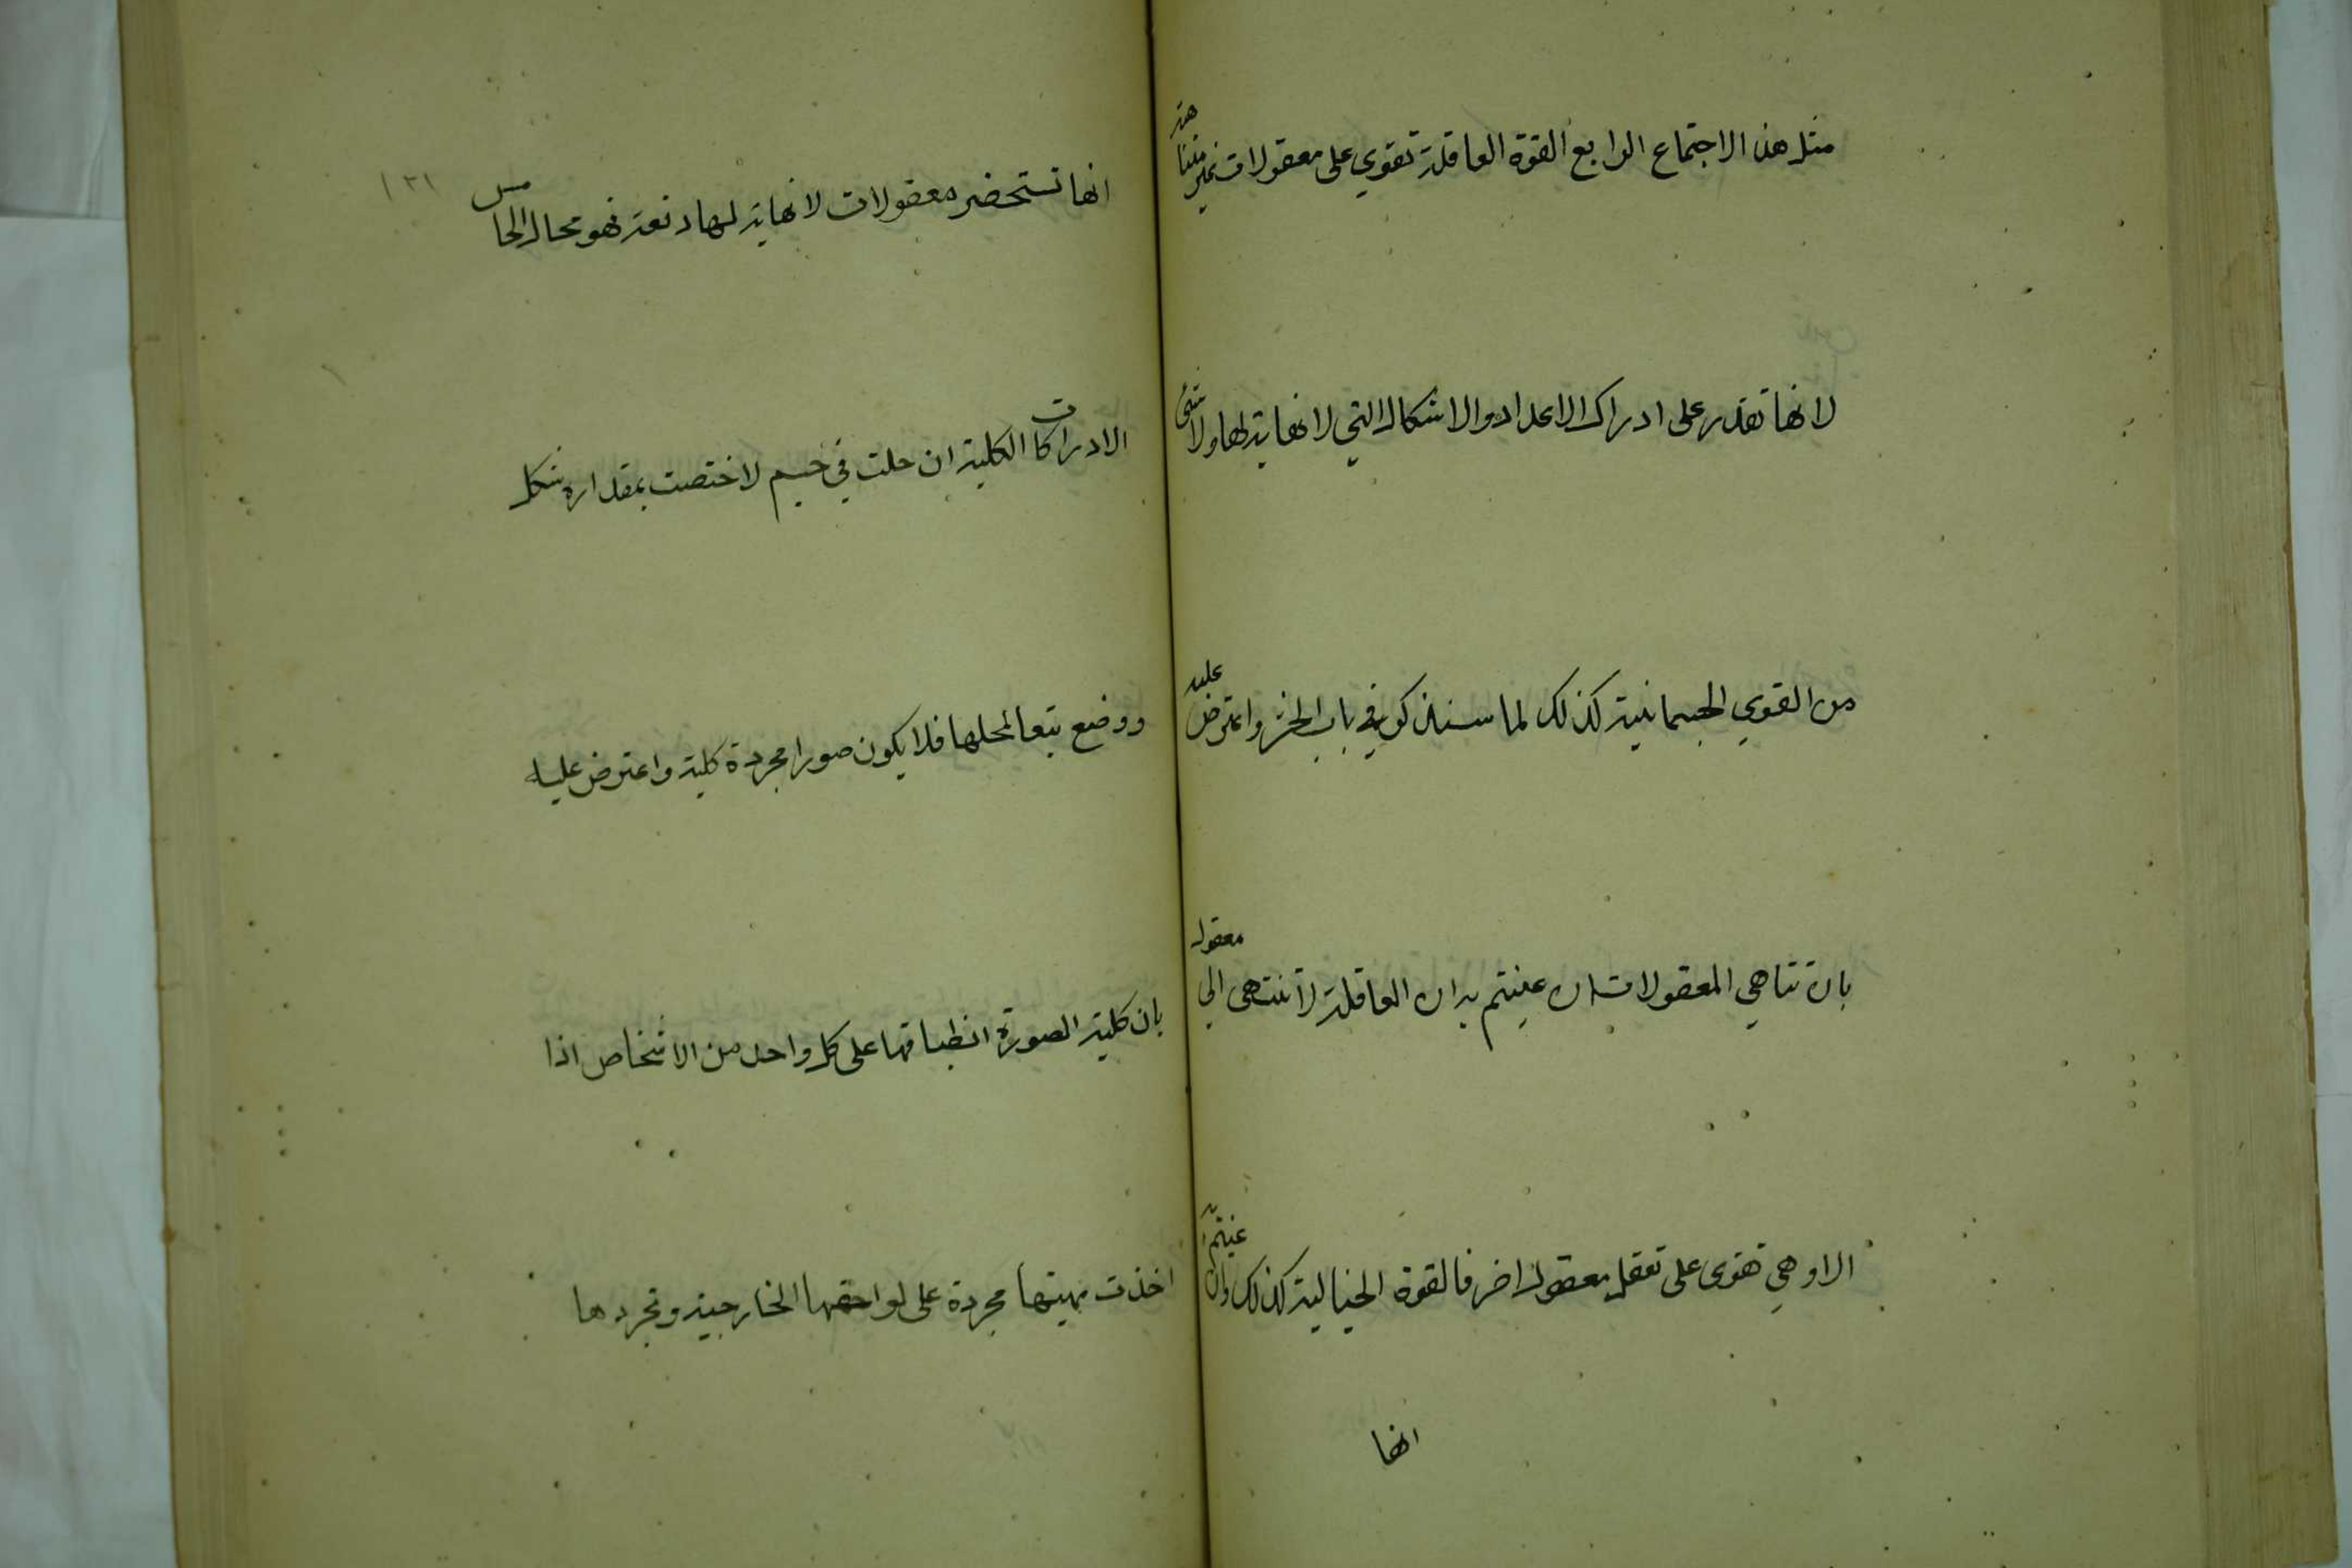 مثل هذا الاجتماع الرابع القوة العاقلة تقوي على معقولات غير متناهية
لانها تقدر على ادراك الاعداد والاشكال التي لا نهاية لها ولا شئ
من القوي الجسمانية كذلك لما سنذكر في باب الحشر واعترض عليه
بان تناهي المعقولات ان عنيتم به ان العاقلة لا تنتهى الي معقول
الا وهي تقوى على تعقل معقول اخر فالقوة الخيالية كذلك وان عنيتم به
انها
١٣١
انها تستحضر معقولات لا نهاية لها دفعة فهو محال الخامس
الادراكات الكلية ان حلت في جسم لاختصت بمقدار وشكل
ووضع تبعا لمحلها فلا يكون صورا مجردة كلية واعترض عليه
بان كلية الصورة انطباقها على كل واحد من الاشخاص اذا
اخذت مهيتها مجردة على لواحقها الخارجية وتجردها